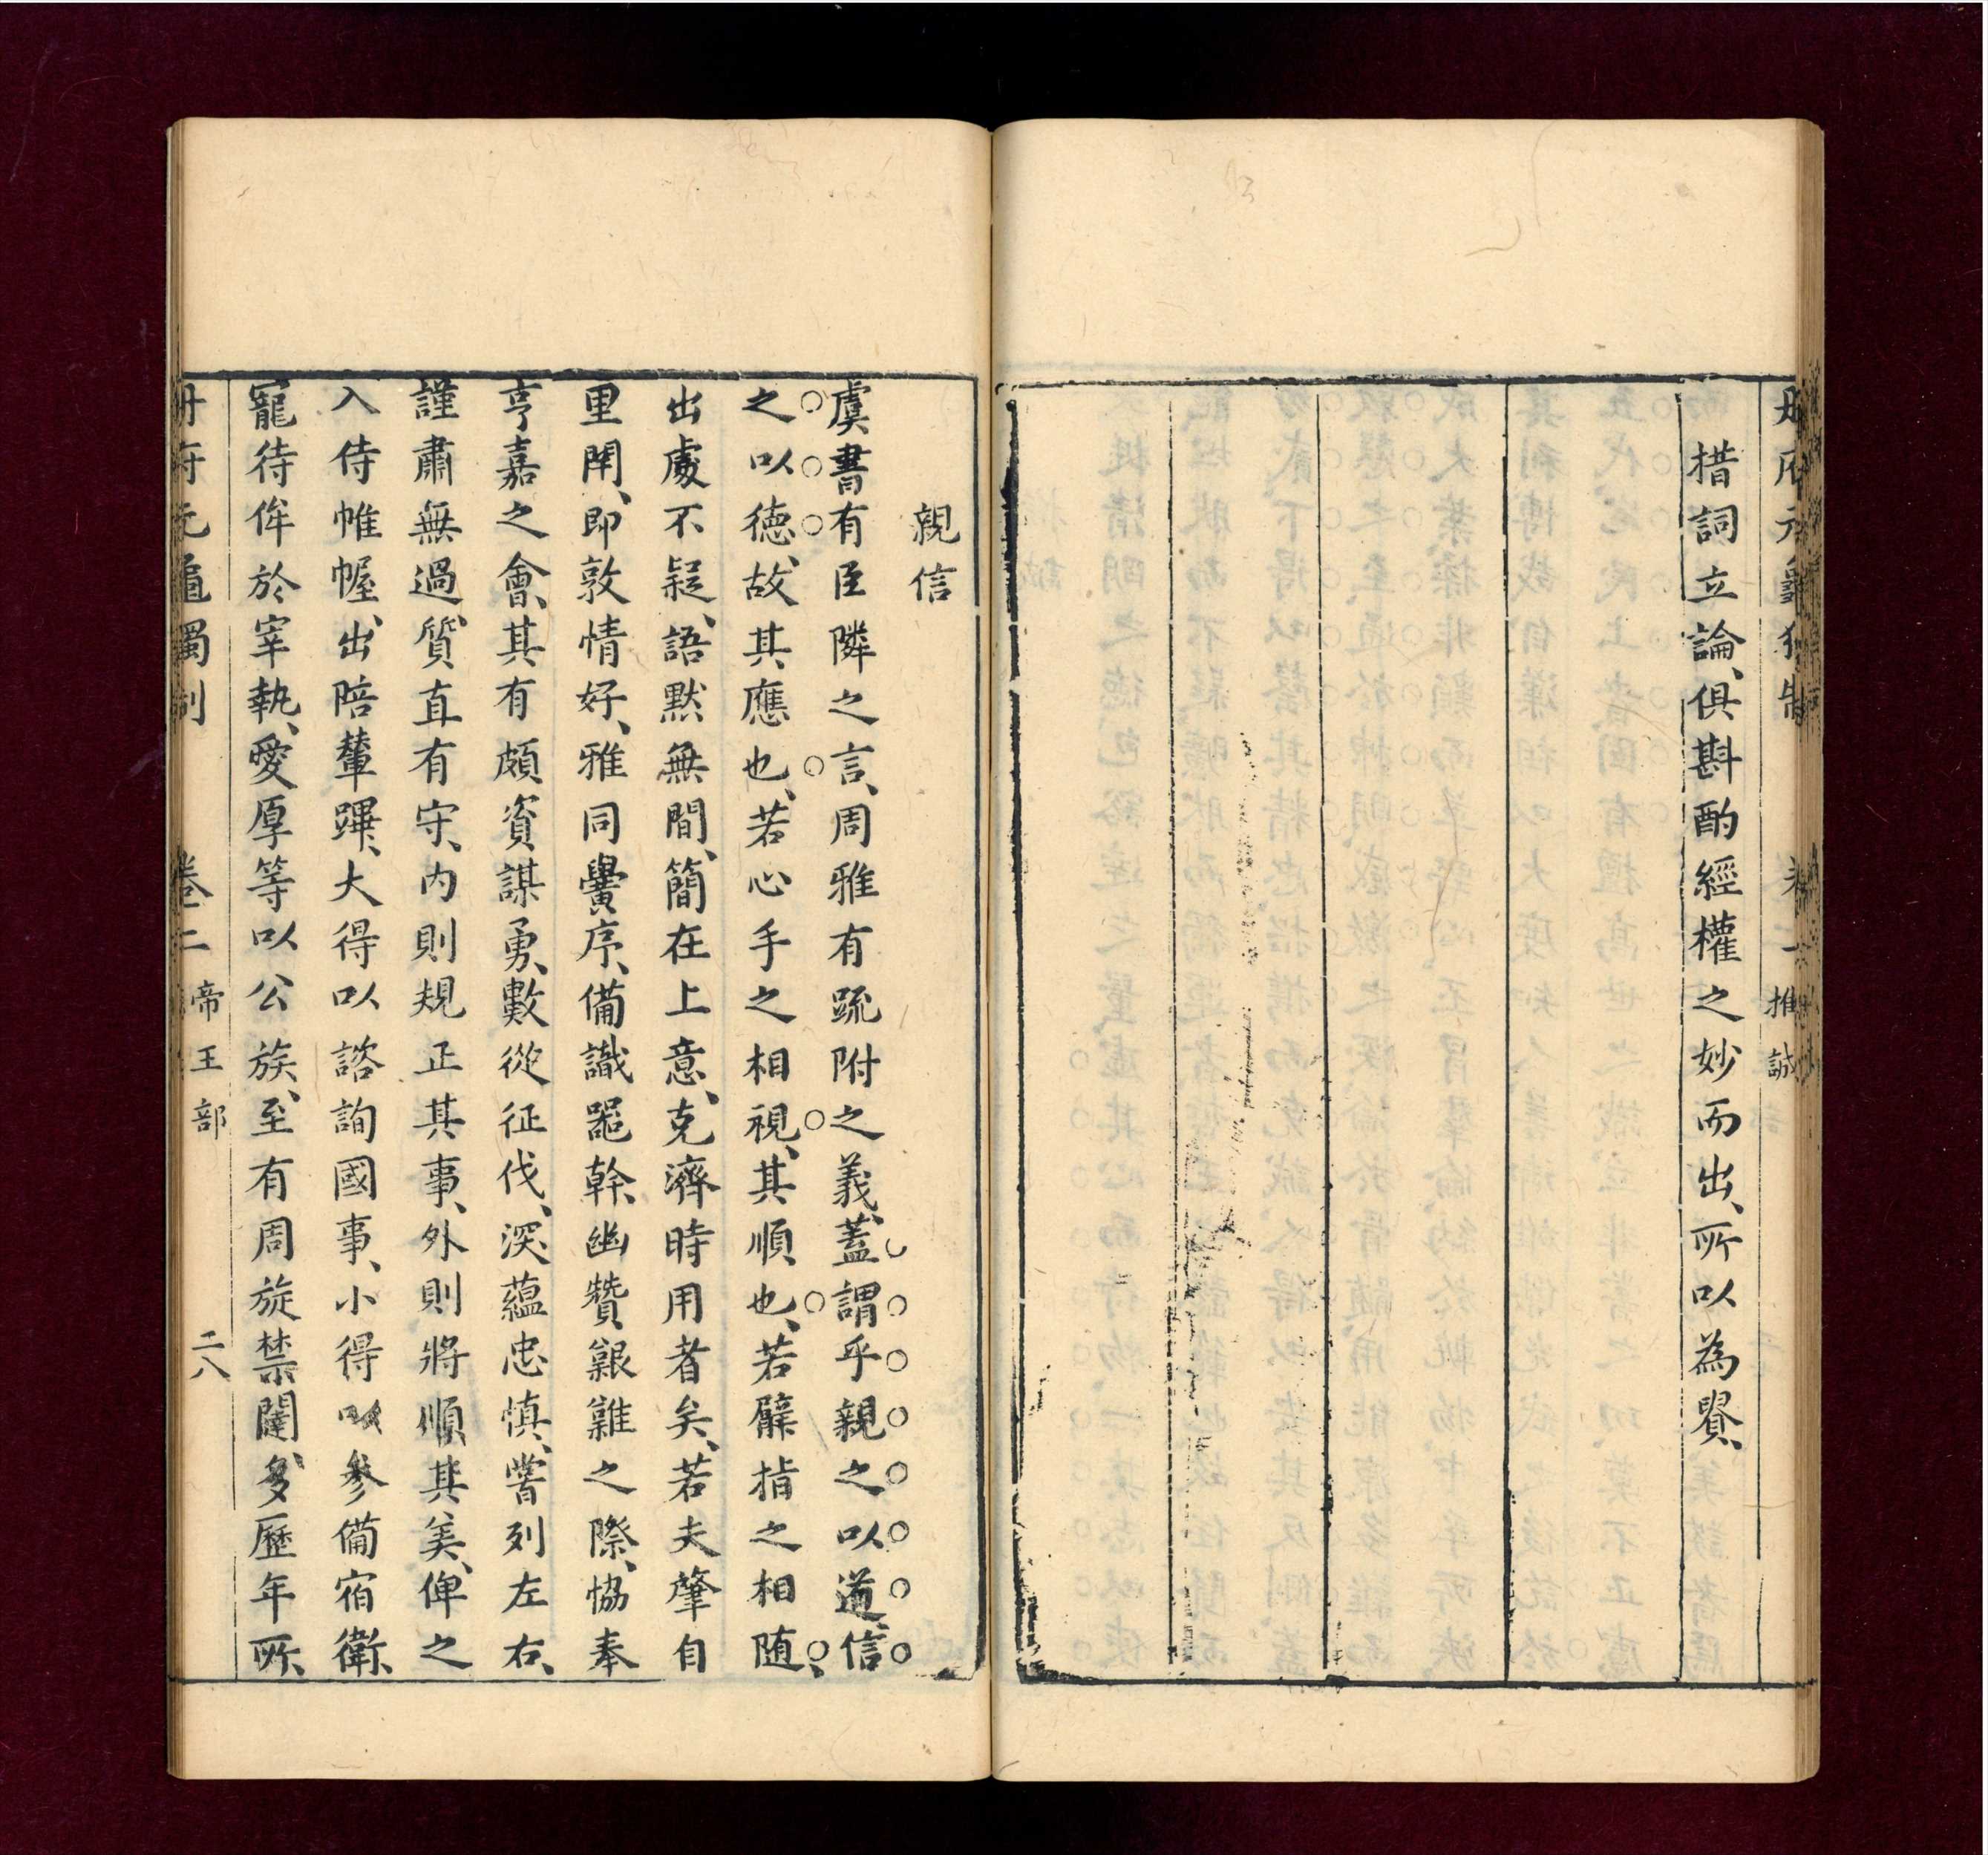 册府元龜獨制
卷一 推誠
措詞立論、俱斟酌經權之妙而出、所以為賢、
親信
虞書有臣隣之言、周雅有疏附之義、蓋謂乎親之以道、信
之以德、故其應也、若心手之相視、其順也、若臂指之相随、
出處不疑、語默無間、簡在上意、克濟時用者矣、若夫肇自
里閈、即敦情好、雅同黌序、備識器幹、幽贊艱難之際、恊奉
亨嘉之會、其有頗資謀勇、數從征伐、深蘊忠慎、嘗列左右、
謹肅無過、質直有守、內則規正其事、外則將順其美、俾之
入侍帷幄、出陪輦蹕、大得以諮詢國事、小得以參備宿衛、
寵待侔於宰執、愛厚等以公族、至有周旋禁闥、多歷年所、
册府元龜獨制
卷二 帝王部
二八